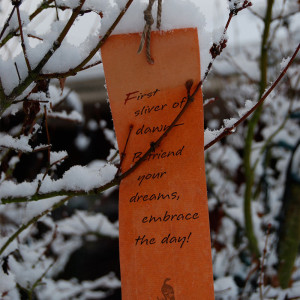 First
sliver of
dawn—
Befriend
your
dreams,
embrace
the day!